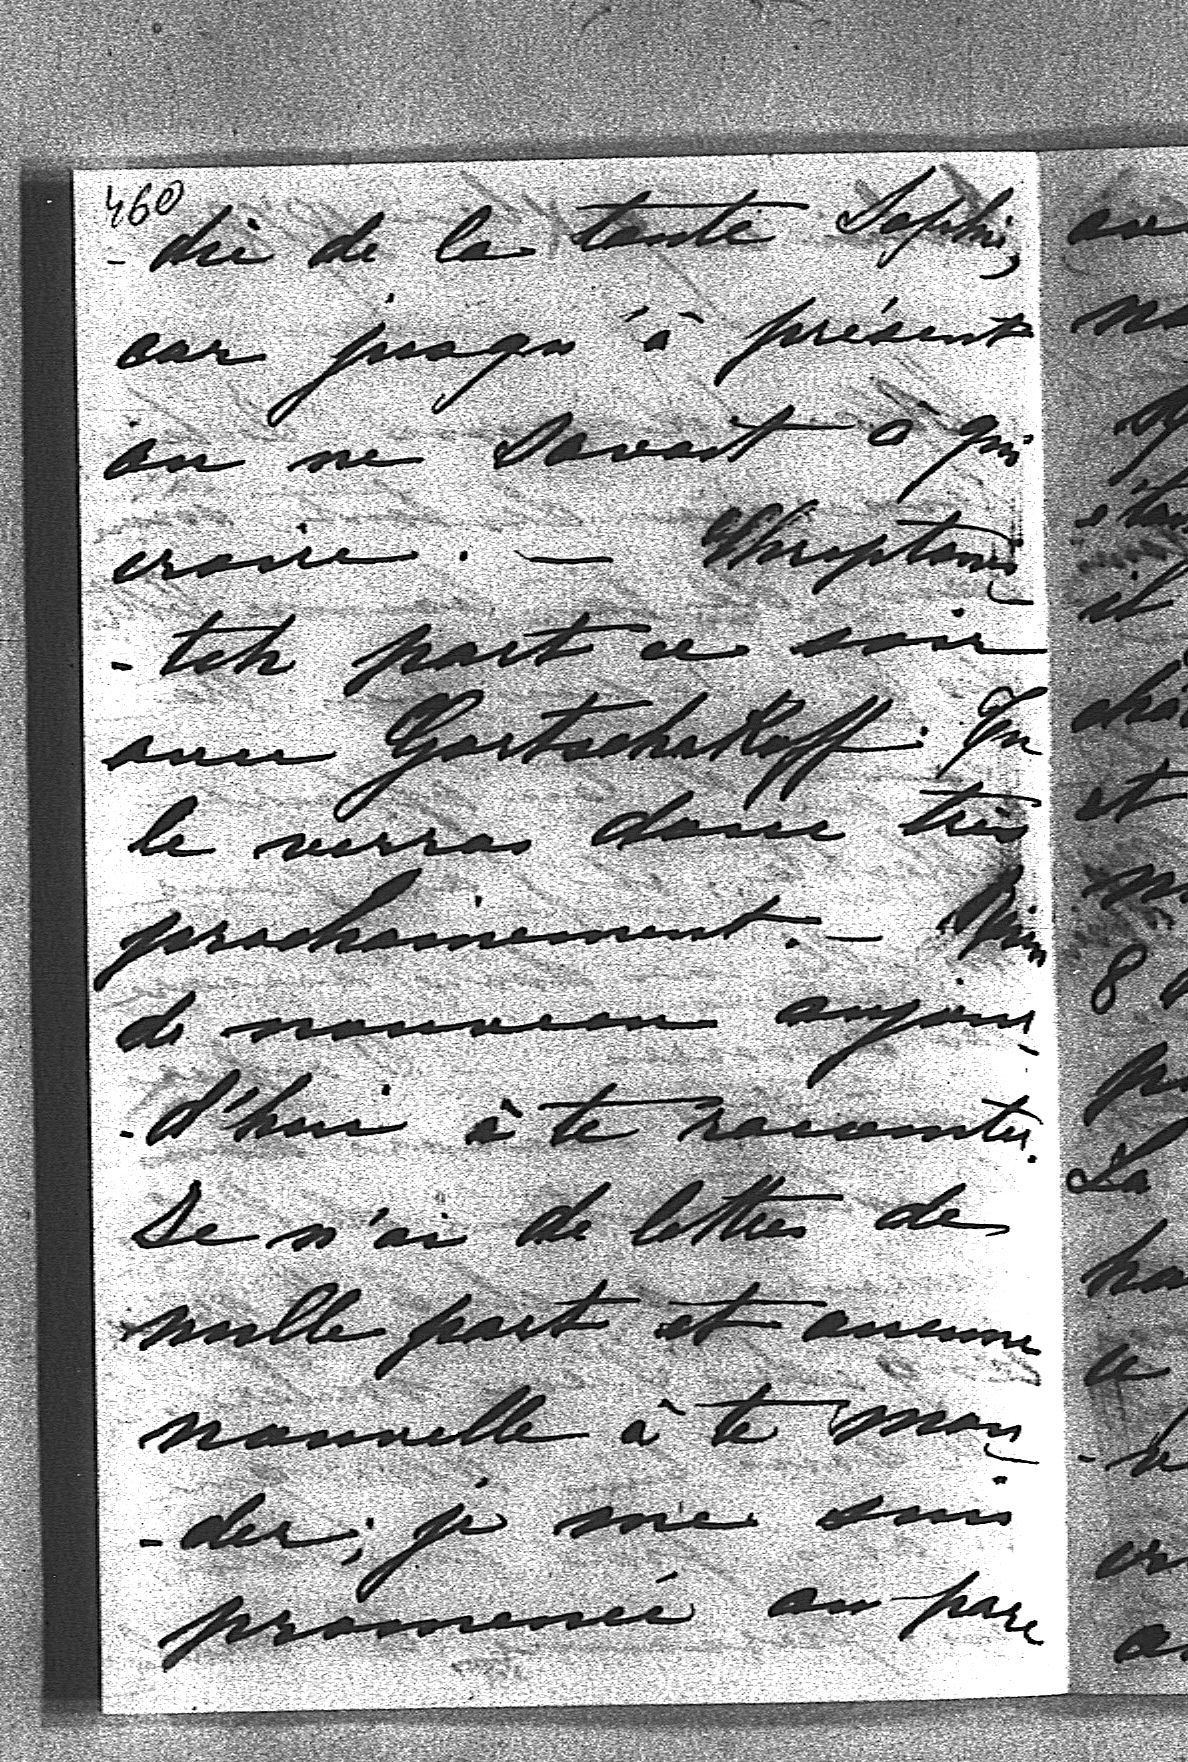 460
-die de la tante Sophie,
car jusqu'à présent
on ne savait à qui
croire. —
-tch part ce soir
avec Gortschakoff. Tu
le verras donc très
prochainement. — Rien
de nouveau aujour-
-d'hui à te raconter.
Je n'ai de lettres de
nulle part et aucune
nouvelle à te man-
-der; je me suis
promenée au parc